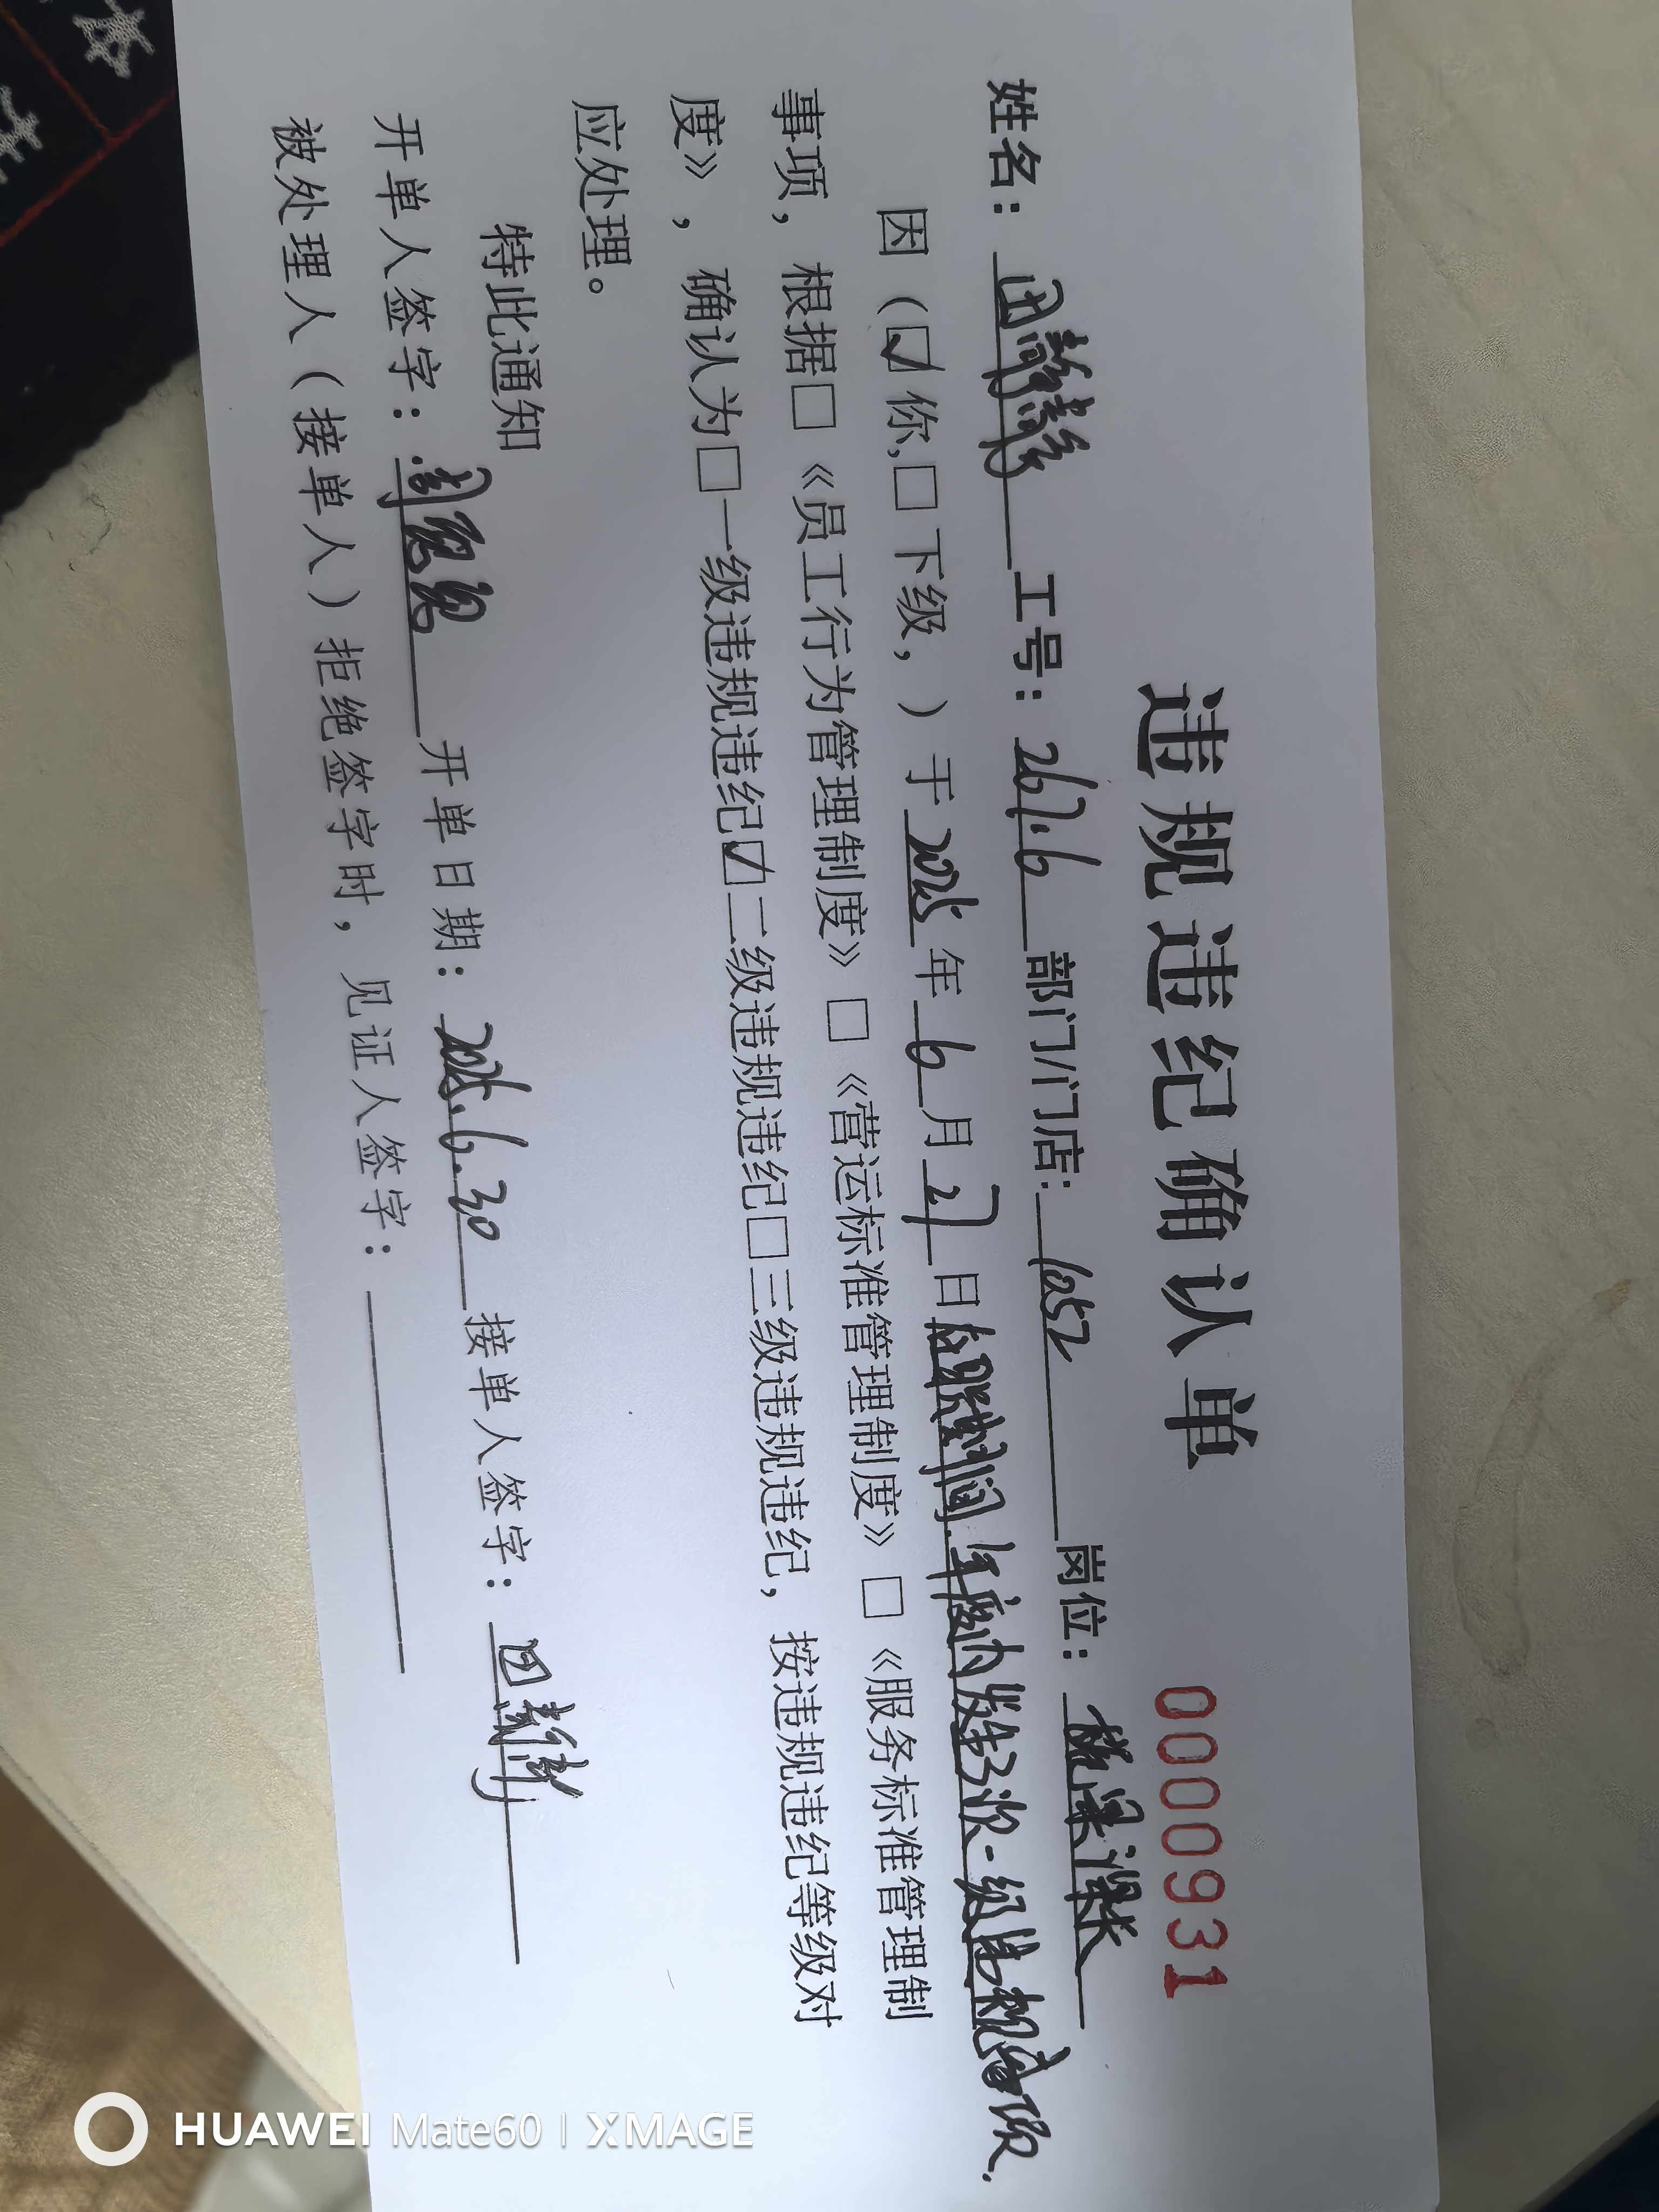 违规违纪确认单 0000931
姓名：田 工号：26716 部门/门店：1052 岗位：蔬果课长
因（☑你，□下级，）于2025年6月27日 时间.年度内发生3次一级违规事项.
事项，根据□《员工行为管理制度》□《营运标准管理制度》□《服务标准管理制
度》，确认为□一级违规违纪☑二级违规违纪□三级违规违纪，按违规违纪等级对
应处理。
特此通知
开单人签字： 开单日期：2025.6.30 接单人签字：田
被处理人（接单人）拒绝签字时，见证人签字：
HUAWEI Mate60 | XMAGE